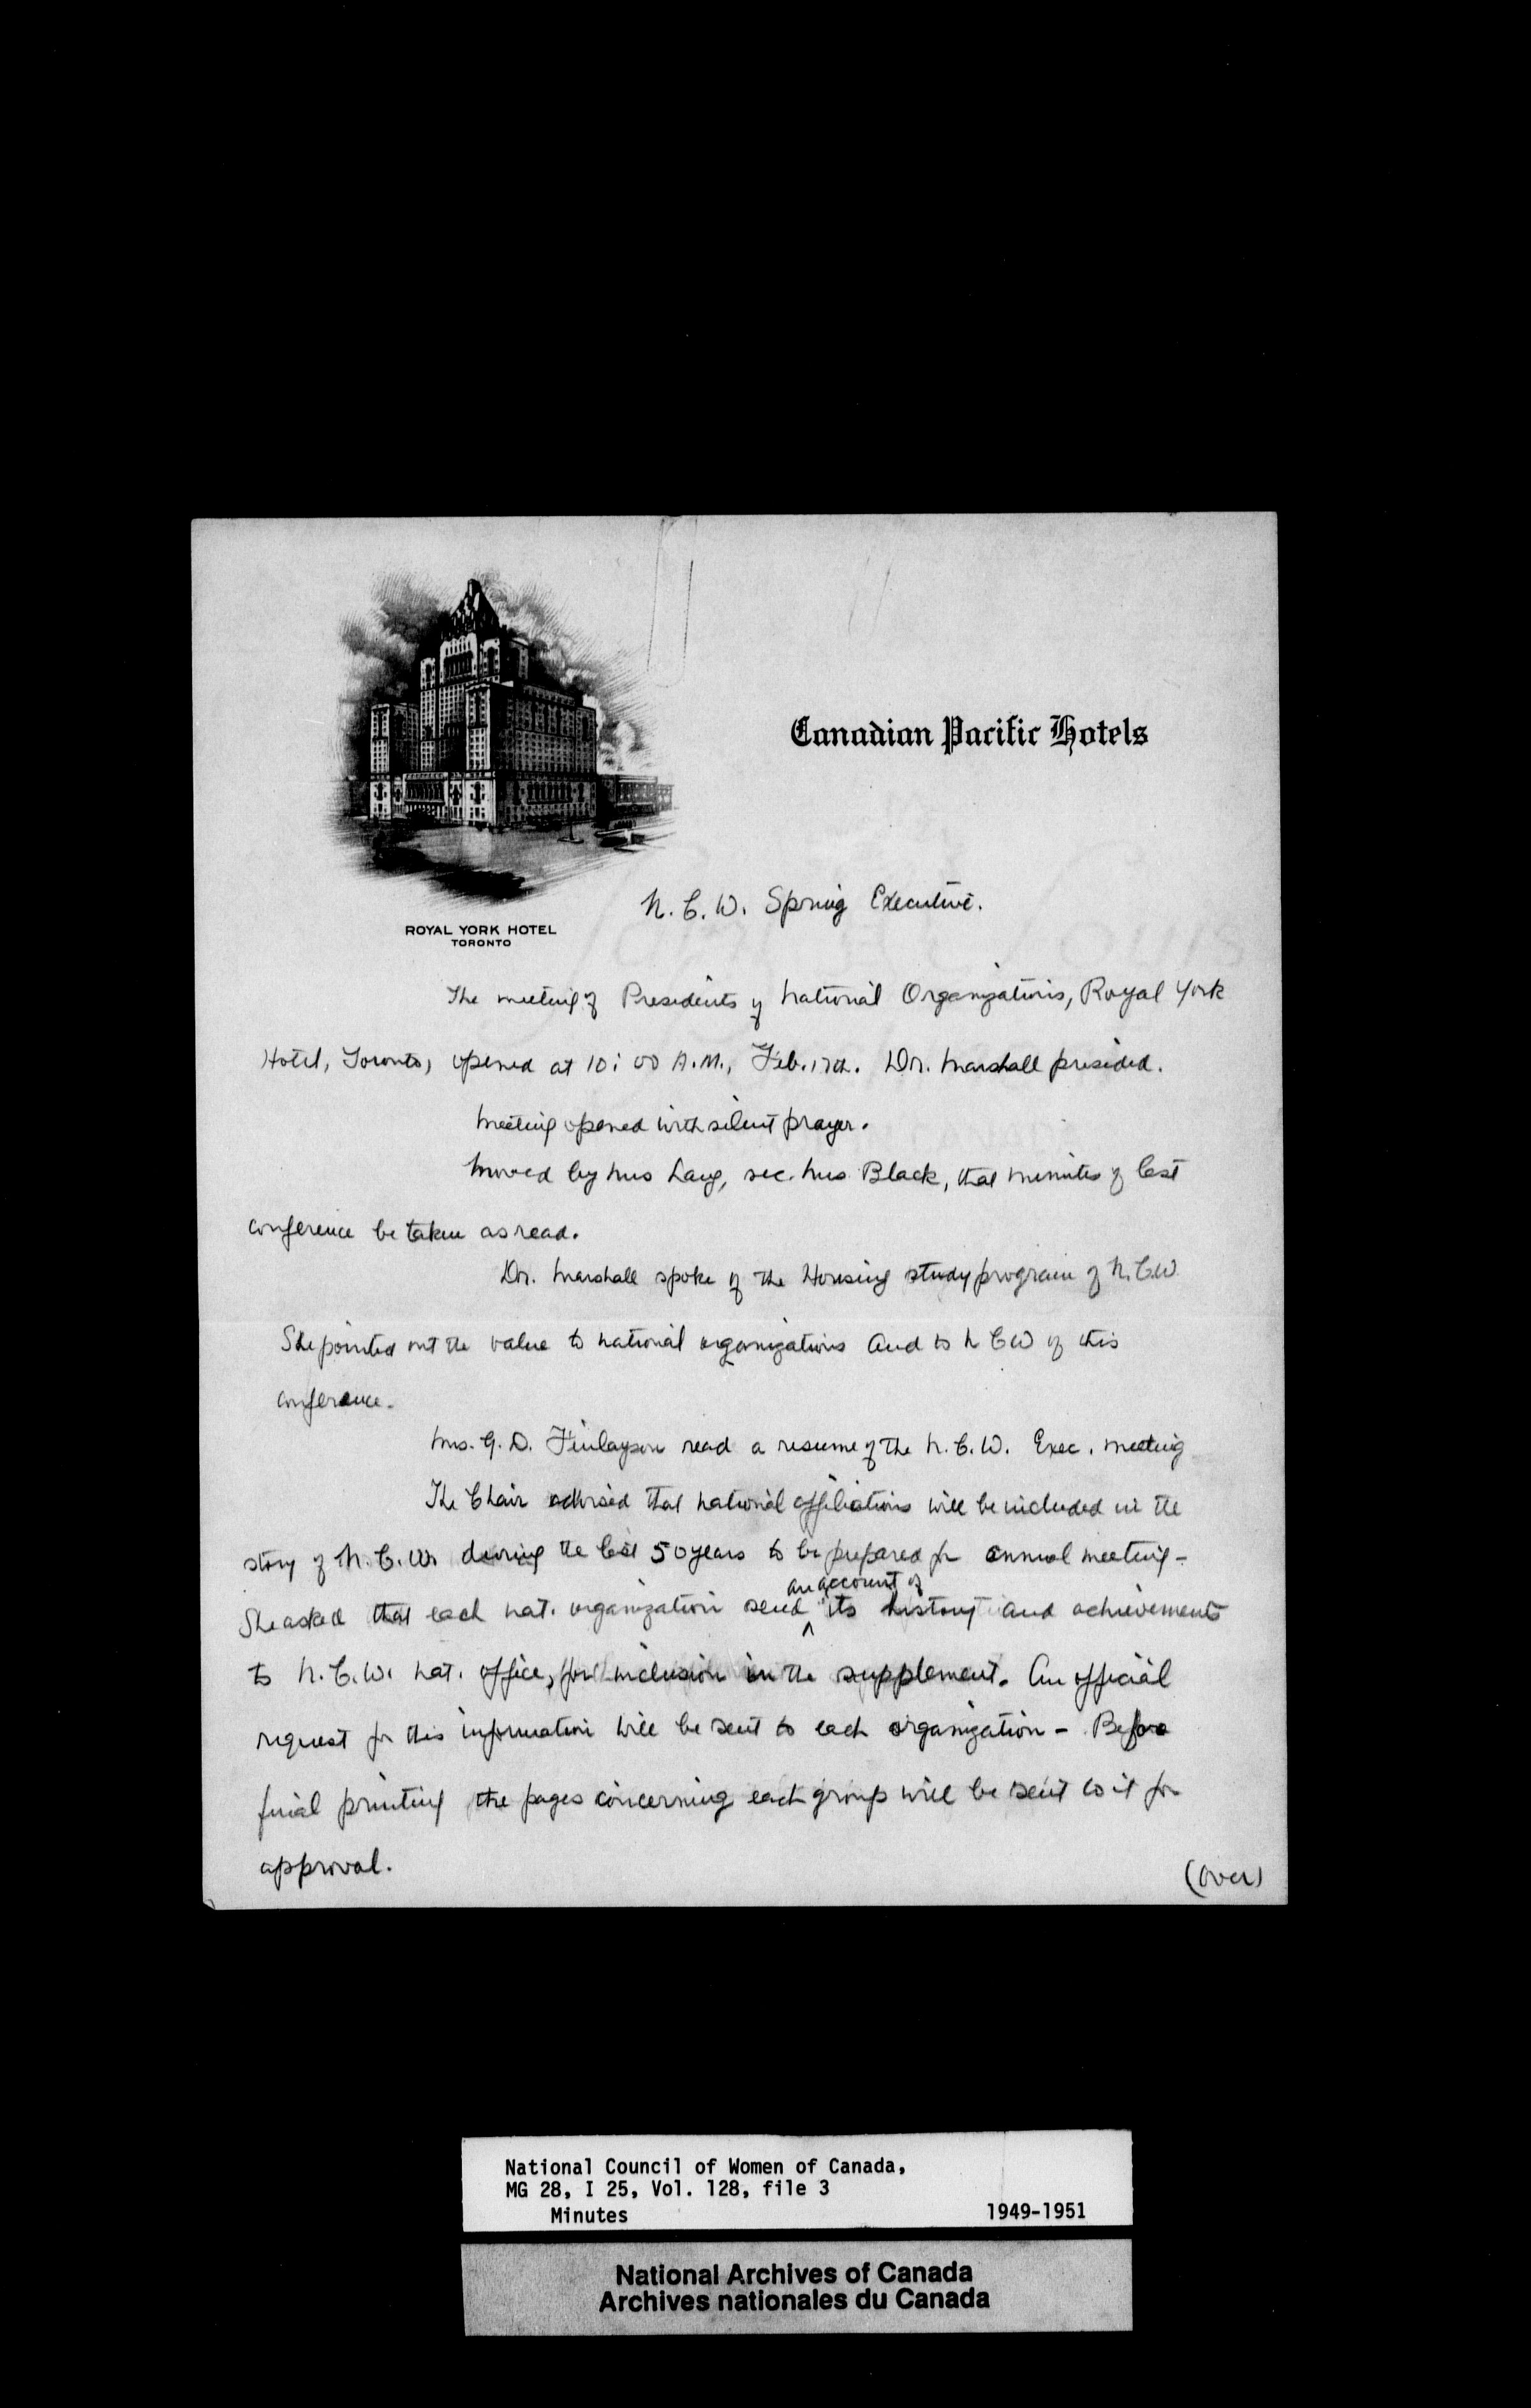 Canadian Pacific Hotels
ROYAL YORK HOTEL
TORONTO
N. C. W. Spring Executive.
The meeting of Presidents of National Organizations, Royal York
Hotel, Toronto, opened at 10:00 A.M., Feb. 17th. Dr. Marshall presided.
Meeting opened with silent prayer.
Moved by Mrs Lang, sec. Mrs Black, that minutes of last
conference be taken as read.
Dr. Marshall spoke of the Housing study program of N.C.W.
She pointed out the value to national organizations and to N C W of this
conference.
Mrs. G. D. Finlayson read a resume of the N. C. W. Exec. meeting
The Chair advised that national affiliations will be included in the
story of N. C. W. during the last 50 years to be prepared for annual meeting -
an account of
She asked that each nat. organization send ^ its history and achievements
to N. C. W. nat. office, for inclusion in the supplement. An official
request for this information will be sent to each organization - Before
final printing the pages concerning each group will be sent to it for
approval.
(over)
National Council of Women of Canada,
MG 28, I 25, Vol. 128, file 3
Minutes 1949-1951
National Archives of Canada
Archives nationales du Canada